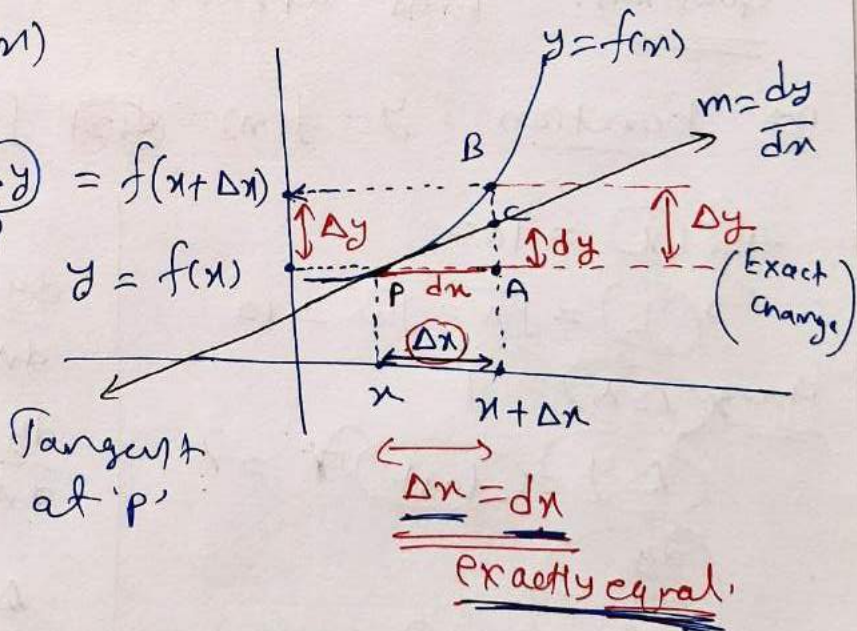 x)
y = f(x)
m = dy/dx
B
y) = f(x+Δx)
C
Δy
dy
Δy
y = f(x)
P
dx
A
(Exact change)
Δx
x
x+Δx
Tangent
at 'p'
Δx = dx
exactly equal.